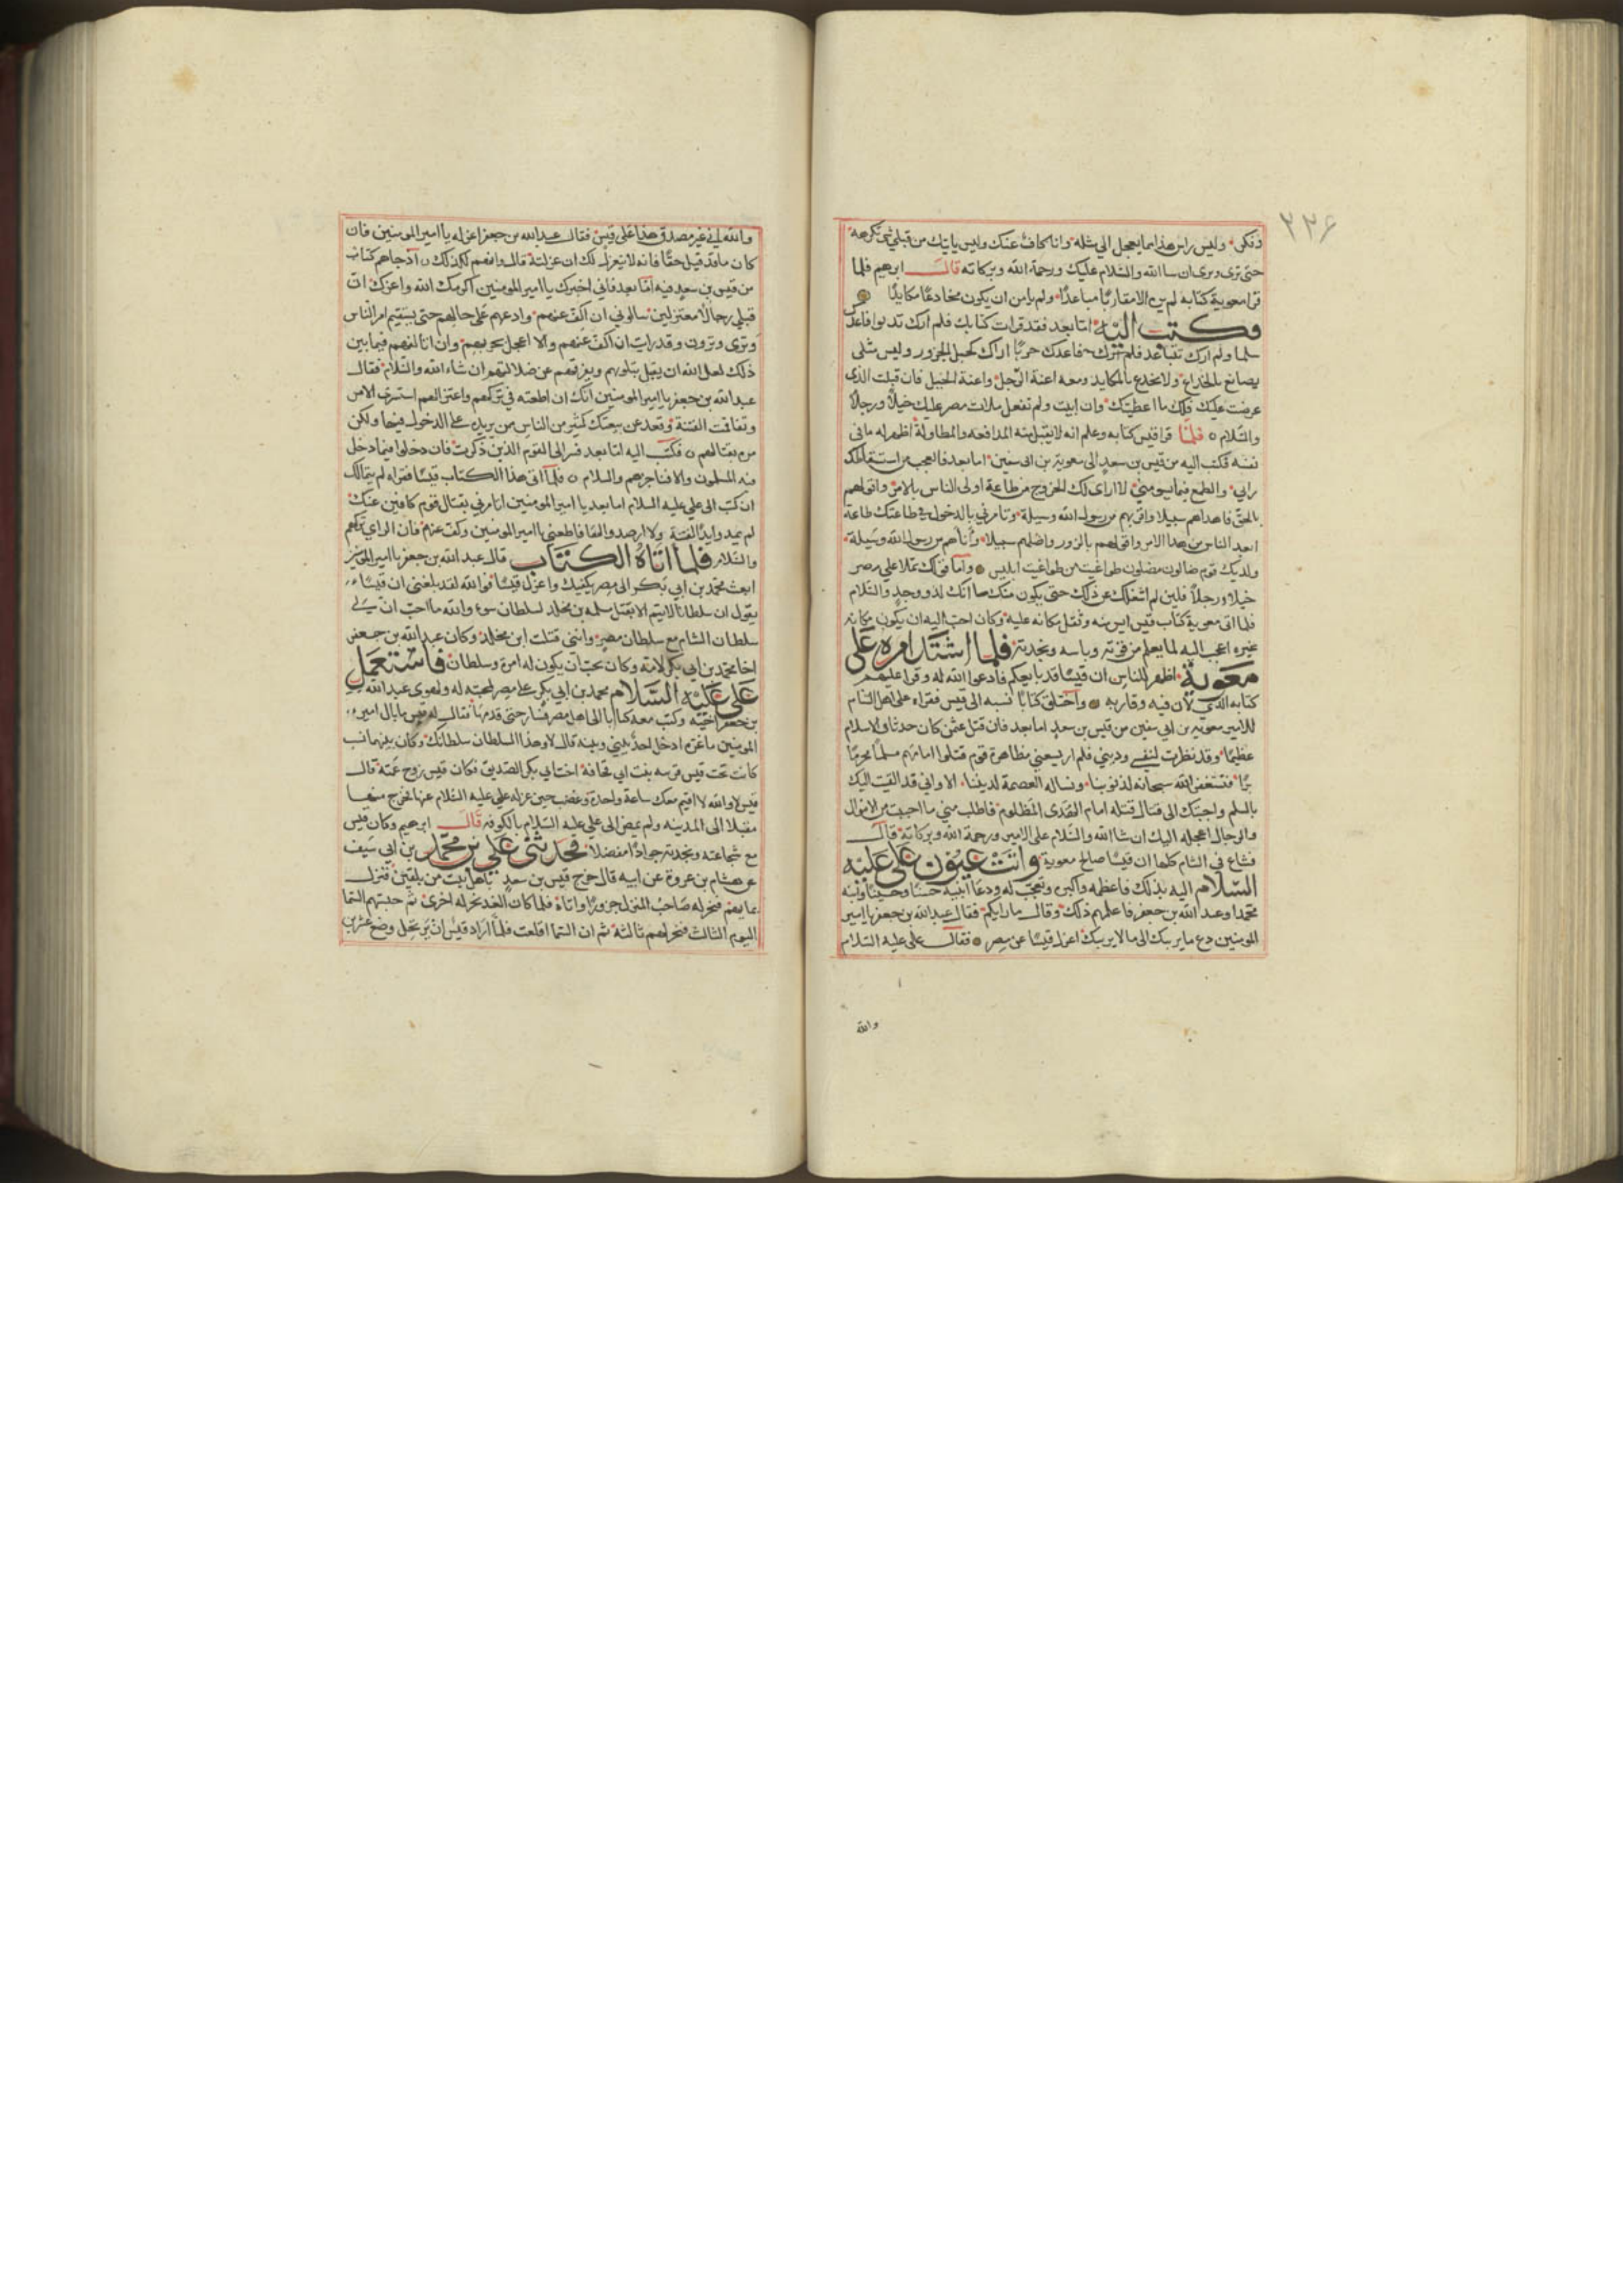 ٢٢۶
وفكر وليس راى هذا مما يعجل الي مثله وانا كاف عنك وليس ياتيك من قبلي شي تكرهه
حتى ترى ونرى ان شا الله والسلام عليك ورحمة الله وبركاته قالـــ ابرهيم فلما
قرا معوية كتابه لم يره الا مقاربا مباعدا ولم يامن ان يكون مخادعا مكايدا
فكتب اليه اما بعد فقد قرات كتابك فلم ارك تدنوا فاعدك
سلما ولم ارك تتباعد فلم فاعدك حربا اراك كحبل الجزور وليس مثلي
يصانع بالخداع ولا يخدع بالمكايد ومعه اعنة الخيل فان قبلت الذى
عرضت عليك فلك ما اعطيتك وان ابيت ولم تفعل ملات مصر عليك خيلا ورجلا
والسلام ٥ فلما قرا قيس كتابه وعلم انه لا يقبل منه المدافعه والمطاولة اظهر له ما في
نفسه فكتب اليه من قيس بن سعد الى معوية بن ابى سفين اما بعد فالعجب من استسقاطك
رايي والطمع فيما يسومني لا ابا لك الخروج من طاعة اولى الناس بالامر واقولهم
بالحق واهداهم سبيلا واقربهم من رسول الله وسيلة وتامرني بالدخول في طاعتك طاعة
ابعد الناس من هذا الامر واقولهم بالزور واضلهم سبيلا واناهم من رسول الله وسيلة
ولديك قوم ضالون مضلون طواغيت من طواغيت ابليس واما قولك تملا علي مصر
خيلا ورجلا فلين لم اشغلك عن ذلك حتى يكون منك انك لذو وجد والسلام
فلما اتى معوية كتاب قيس ايس منه وثقل مكانه عليه وكان احب اليه ان يكون مكانه
غيره اعجب اليه لما يعلم من قوته وباسه ونجدته فلما اشتد امره على
معوية اظهر للناس ان قيسا قد بايعكم فادعوا الله له وقرا عليهم
كتابه الذي لان فيه وقاربه واختلق كتابا نسبه الى قيس فقراه على اهل الشام
للامير معوية بن ابى سفين من قيس بن سعد اما بعد فان قتل عثمن كان حدثا في الاسلام
عظيما وقد نظرت لنفسي وديني فلم ار يسعني مظاهرة قوم قتلوا امامهم مسلما محرما
برا فنستغفر الله سبحانه لذنوبنا ونساله العصمة لديننا الا واني قد القيت اليك
بالسلم واجبتك الى قتال قتلة امام الهدى المظلوم فاطلب مني ما احببت من الاموال
والرجال اعجله اليك ان شا الله والسلام على الامير ورحمة الله وبركاته قالـــ
فشاع في الشام كلها ان قيسا صالح معوية واتت عيون علي عليه
السلام اليه بذلك فاعظمه واكبره وتعجب له ودعا ابنيه حسنا وحسينا وابنه
محمدا وعبد الله بن جعفر فاعلمهم ذلك وقال ما رايكم فقال عبد الله بن جعفر يا امير
المومنين دع ما يريبك الى ما لا يريبك اعزل قيسا عن مصر فقالـــ علي عليه السلام
والله
والله اني غير مصدق هذا على قيس فقال عبد الله بن جعفر اعزله يا امير المومنين فان
كان ما قد قيل حقا فانه لا يعتزل لك ان عزلته قال وانهم لكذلك اذ جاهم كتاب
من قيس بن سعد فيه اما بعد فاني اخبرك يا امير المومنين اكرمك الله واعزك ان
قبلي رجالا معتزلين سالوني ان اكف عنهم وادعهم على حالهم حتى يستقيم امر الناس
ونرى ويرون وقد رايت ان اكف عنهم والا اعجل بحربهم وان اتالفهم فيما بين
ذلك لعل الله ان يقبل بقلوبهم ويفرقهم عن ضلالتهم ان شاء الله والسلام فقالـــ
عبد الله بن جعفر يا امير المومنين انك ان اطعته في تركهم واعتزالهم استشرى الامر
وتفاقمت الفتنة وقعد عن بيعتك كثير من الناس ممن تريده على الدخول فيها ولكن
مره بقتالهم ٥ فكتب اليه اما بعد فسر الى القوم الذين ذكرت فان دخلوا فيما دخل
فيه المسلمون والا فناجزهم والسلام ٥ فلما اتى هذا الكتاب قيسا فقراه لم يتمالك
ان كتب الى علي عليه السلام اما بعد يا امير المومنين اتامرني بقتال قوم كافين عنك
لم يمدوا يدا لفتنة ولا ارصدوا لها فاطعني يا امير المومنين وكف عنهم فان الراي تركهم
والسلام فلما اتاه الكتاب قال عبد الله بن جعفر يا امير المومنين
ابعث محمد بن ابي بكر الى مصر يكفيك واعزل قيسا فوالله لقد بلغني ان قيسا
يقول ان سلطانا لا يتم الا بقتل مسلمه بن مخلد لسلطان سوء والله ما احب ان لي
سلطان الشام مع سلطان مصر وانني قتلت ابن مخلد وكان عبد الله بن جعفر
اخا محمد بن ابي بكر لامه وكان يحب ان يكون له امرة وسلطان فاستعمل
علي عليه السلام محمد بن ابي بكر على مصر لمحبته له ولهوى عبد الله
بن جعفر اخيه وكتب معه كتابا الى اهل مصر فسار حتى قدمها فقال له قيس ما بال امير
المومنين ما غيره ادخل احد بيني وبينه قال لا وهذا السلطان سلطانك وكان بينهما نسب
كانت تحت قيس قريبه بنت ابي قحافة اخت ابي بكر الصديق فكان قيس زوج عمته قالـــ
قيس لا والله لا اقيم معك ساعة واحدة وغضب حين عزله علي عليه السلام عنها فخرج منها
مقبلا الى المدينه ولم يمض الى علي عليه السلام بالكوفه قالـــ ابرهيم وكان قيس
مع شجاعته ونجدته جوادا مفضلا فحدثني علي بن محمد بن ابي سيف
عن هشام بن عروة عن ابيه قال خرج قيس بن سعد باهل بيت من بلقين فنزلـــ
بمايهم فنحر له صاحب المنزل جزورا واتاه فلما كان الغد نحر له اخرى ثم حبستهم السما
اليوم الثالث فنحر لهم ثالثة ثم ان السما اقلعت فلما اراد قيس ان يرتحل وضع عشرين